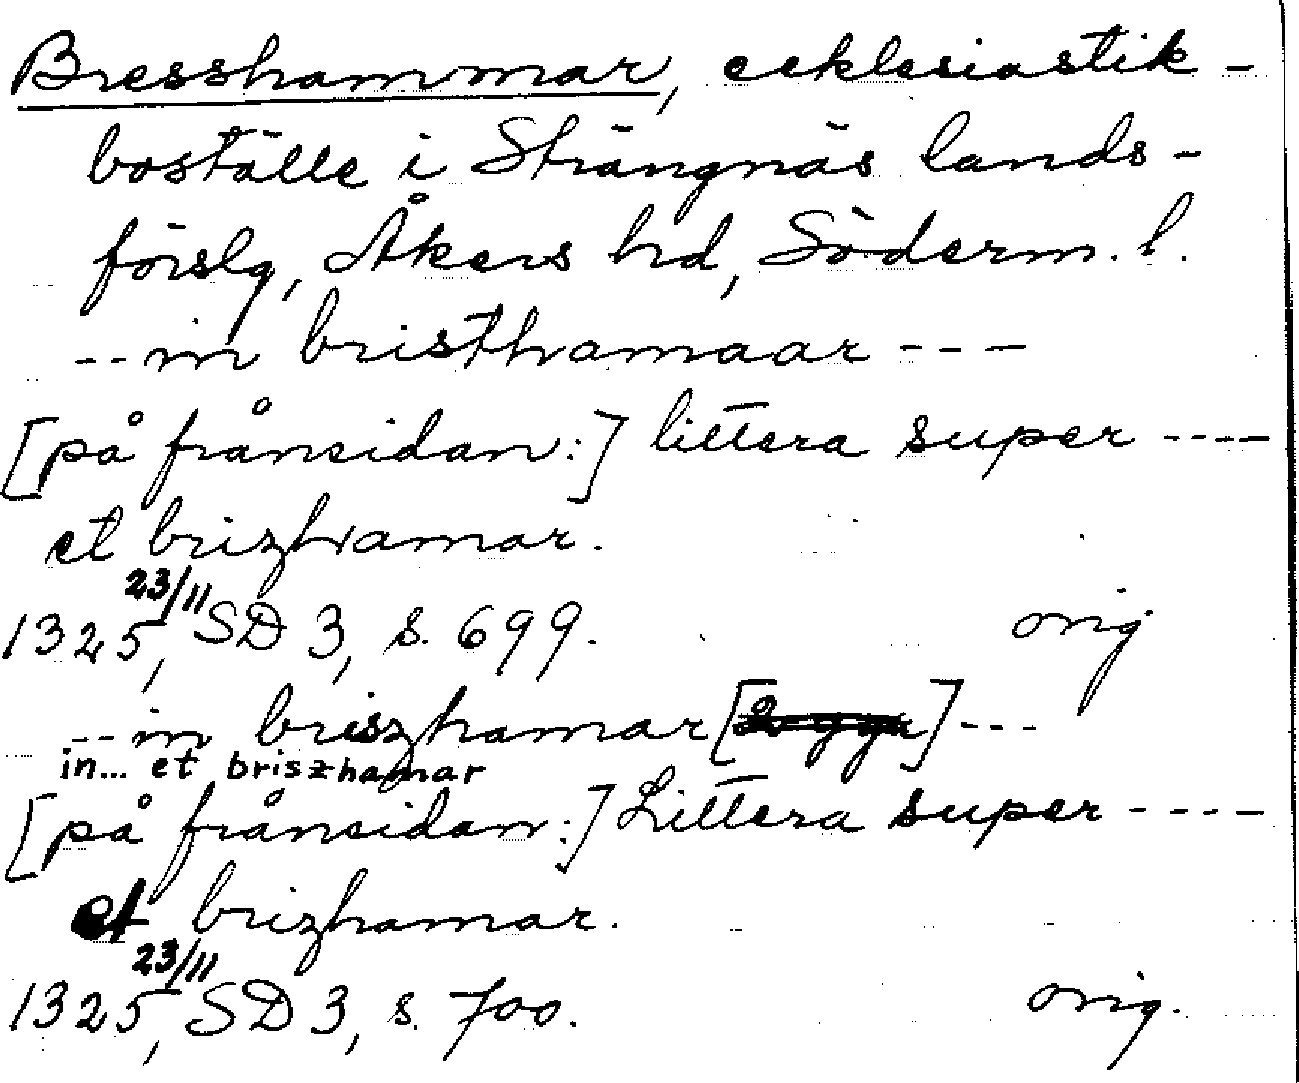 Bresshammar, ecklesiastik-
boställe i Strängnäs lands-
förslg, Åkers hd, Söderm. l.
--in bristhamaar ---
[på frånsidan:] littera super ----
et brizhamar.
1325 23/11, SD 3, s. 699. orig
--in briszhamar [] ---
in... et briszhamar
[på frånsidan:] Littera super ----
et brizhamar.
1325 23/11, SD 3, s. 700. orig.